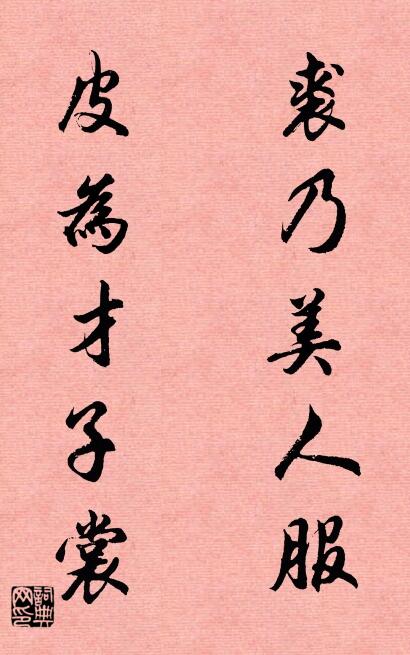 裘乃美人服
皮為才子裳
詞典网印